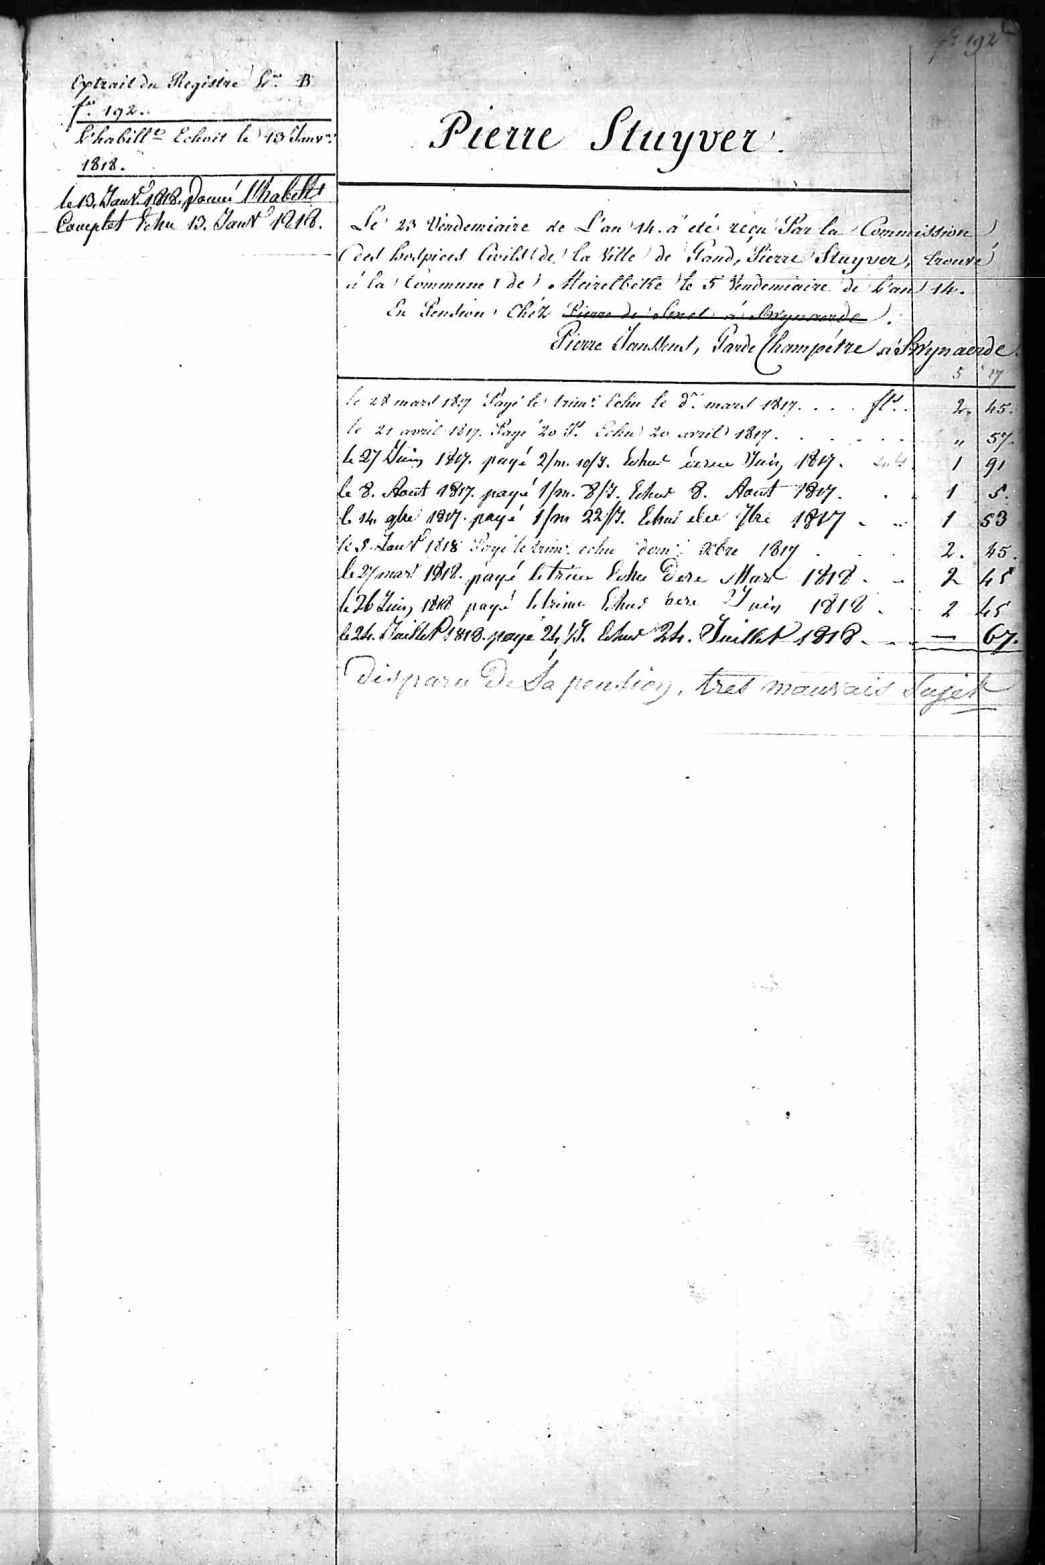 fo 192
Extrait du Registre Lre. B
fo. 192.
L'habillt. Echoit le 13 Janvr.
1818.
le 13 Janvr. 1818. Donné l'habillt
Complet Echu 13. Janvr 1818.
Pierre Stuyver.
Le 23 Vendemiaire de L'an 14. a été reçu Par la Commission
des hospices Civils de la Ville de Gand, Pierre Stuyver, trouvé
à la Commune de Meirelbeke le 5 Vendemiaire de L'an 14.
En Pension Chéz Pierre de à Swynaerde.
Pierre Janssens, Garde Champétre à Swynaerde.
5 17
le 28 mars 1817 Payé le trimr. Echu le dr. mars 1817. . . . fls. 2. 45.
le 21 avril 1817. Payé 20 Js. Echu 20 avril 1817. . . . . . . " 57.
le 27 Juin 1817. payé 2/m. 10/J. Echus Juin 1817. 1 91
le 8. Août 1817. payé 1/m. 8/J. Echus 8. Août 1817. . . 1 5.
le 14 gbre 1817. payé 1/m 22/J. Echus 7bre 1817 - - 1 53
le 3. Janvr 1818 Payé le trimr. echu Xbre 1817 . . . 2. 45.
le 27 mars 1818. payé le trime Echu dere Mars 1818. - 2 45
le 26 Juin 1818 payé le trime Echus Juin 1818. 2 45
le 24. Juillet 1818. payé 24/J. Echus 24. Juillet 1818. - - — 67.
disparu De Sa pension, tres mauvais Sujet